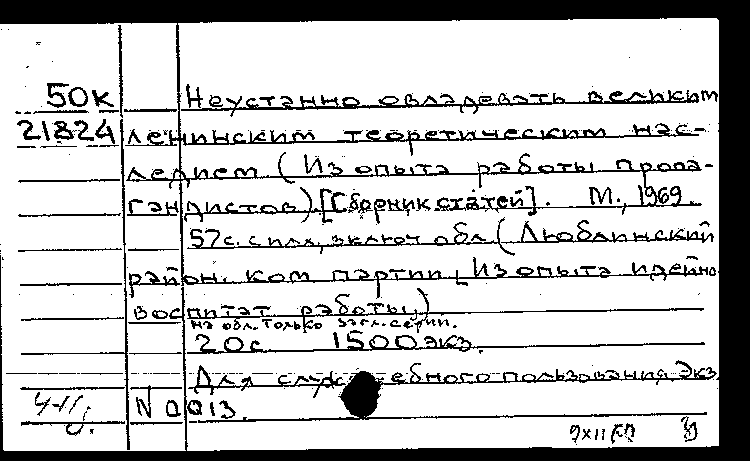 50к Неустанно овладевать великим
21824 ленинским теоретическим нас-
ледием (Из опыта работы пропа-
гандистов). [Сборник статей]. М., 1969.
57с. с илл., включ обл (Люблинский
район. ком партии Из опыта идейно
воспитат работы)
на обл. только загл. серии.
20с 1500 экз.
Для служебного пользования, Экз
N 0013.